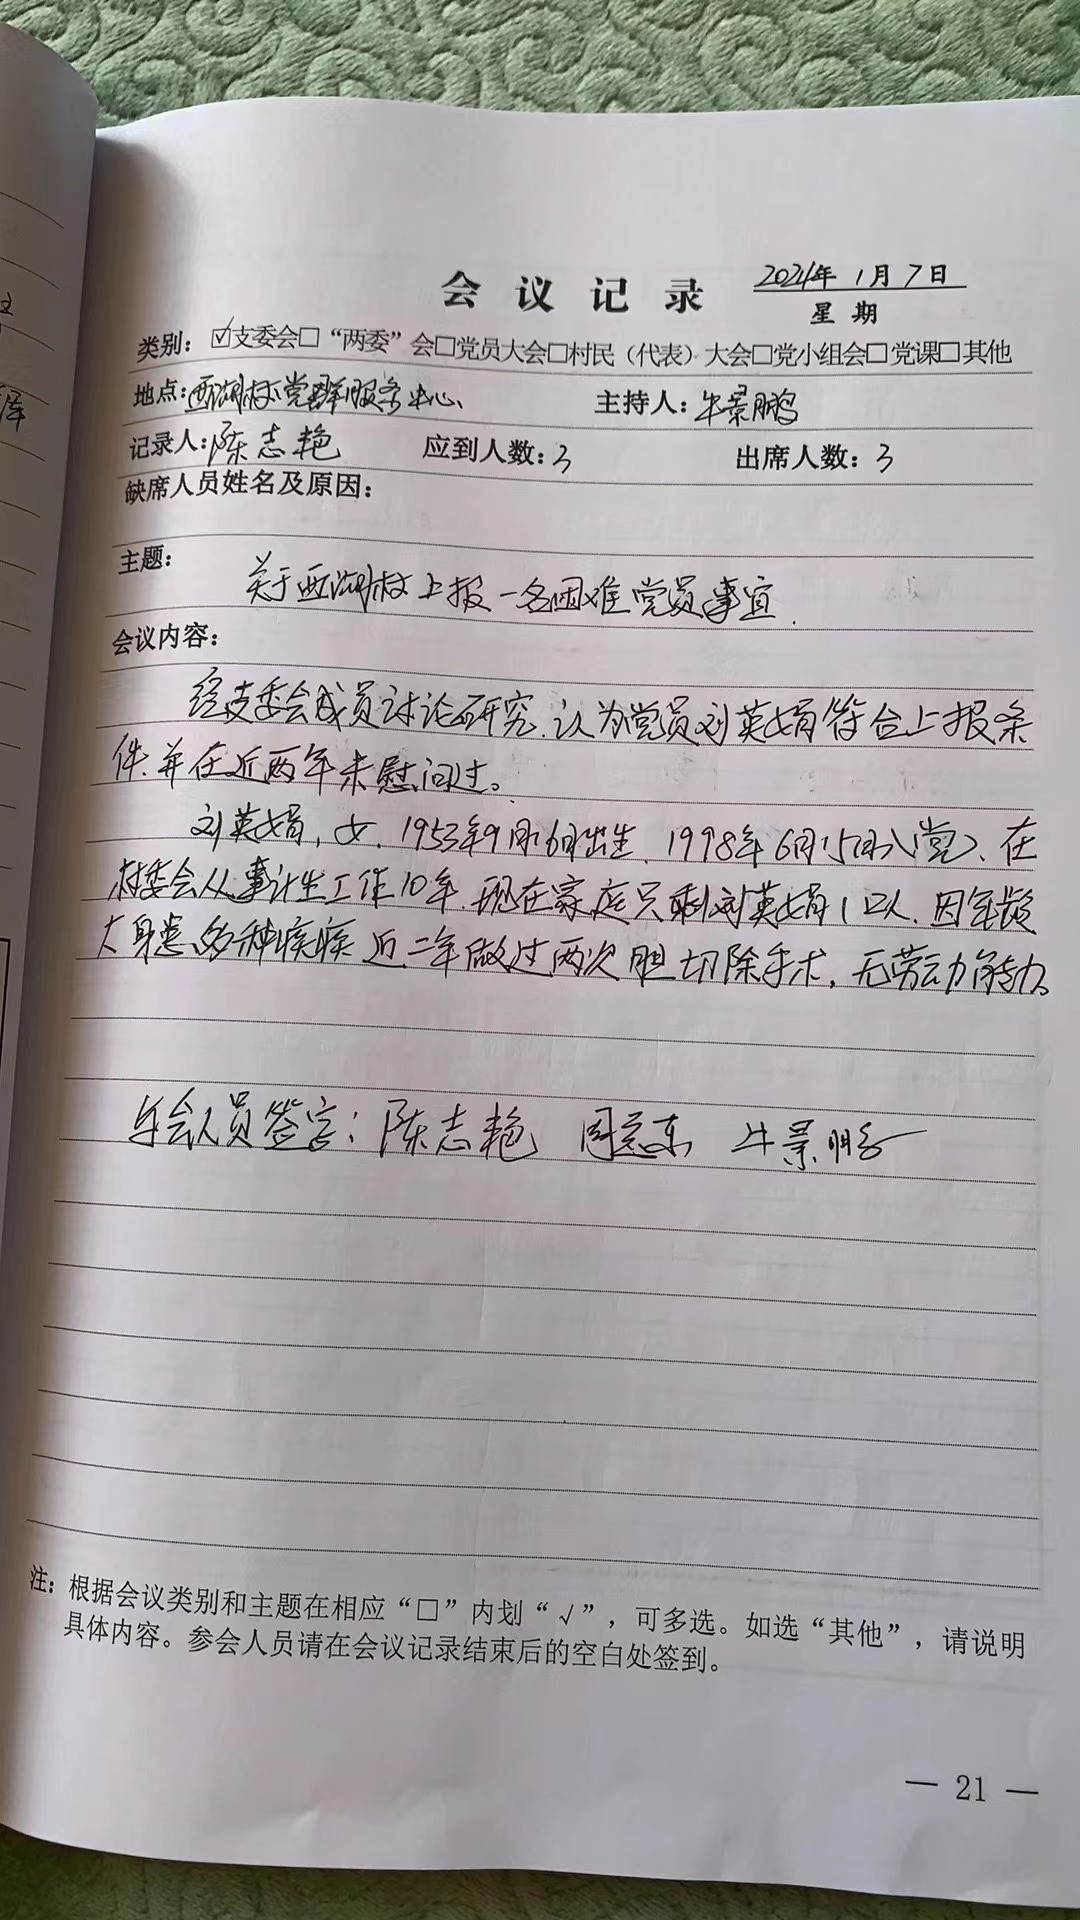 会议记录
2024年1月7日
星期
类别：☑支委会□“两委”会□党员大会□村民（代表）大会□党小组会□党课□其他
地点：西湖村党群服务中心
主持人：牛景鹏
记录人：陈志艳
应到人数：3
出席人数：3
缺席人员姓名及原因：
主题：
关于西湖村上报一名困难党员事宜.
会议内容：
经支委会成员讨论研究.认为党员刘英娟符合上报条
件.并在近两年未慰问过。
刘英娟，女.1953年9月16日出生.1998年6月15日入党、在
村委会从事计生工作10年.现在家庭只剩刘英娟1口人.因年龄
大身患多种疾病 近二年做过两次胆切除手术，无劳动力能力。
与会人员签字：陈志艳 牛景鹏
注：根据会议类别和主题在相应“□”内划“√”，可多选。如选“其他”，请说明
具体内容。参会人员请在会议记录结束后的空白处签到。
— 21 —